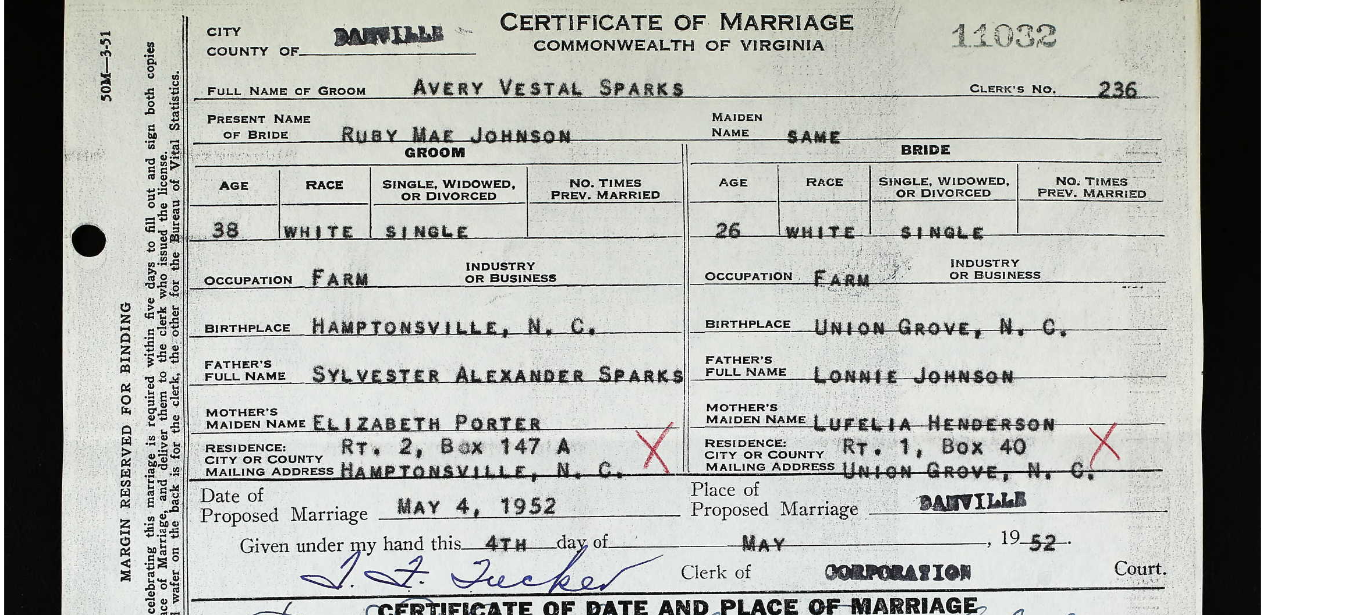 CERTIFICATE OF MARRIAGE
COMMONWEALTH OF VIRGINIA
CITY
COUNTY OF DANVILLE
11032
FULL NAME OF GROOM AVERY VESTAL SPARKS CLERK'S NO. 236
PRESENT NAME OF BRIDE RUBY MAE JOHNSON MAIDEN NAME SAME
GROOM BRIDE
AGE RACE SINGLE, WIDOWED, OR DIVORCED NO. TIMES PREV. MARRIED AGE RACE SINGLE, WIDOWED, OR DIVORCED NO. TIMES PREV. MARRIED
38 WHITE SINGLE 26 WHITE SINGLE
OCCUPATION FARM INDUSTRY OR BUSINESS OCCUPATION FARM INDUSTRY OR BUSINESS
BIRTHPLACE HAMPTONSVILLE, N. C. BIRTHPLACE UNION GROVE, N. C.
FATHER'S FULL NAME SYLVESTER ALEXANDER SPARKS FATHER'S FULL NAME LONNIE JOHNSON
MOTHER'S MAIDEN NAME ELIZABETH PORTER MOTHER'S MAIDEN NAME LUFELIA HENDERSON
RESIDENCE: CITY OR COUNTY RT. 2, BOX 147 A X RESIDENCE: CITY OR COUNTY RT. 1, BOX 40 X
MAILING ADDRESS HAMPTONSVILLE, N. C. MAILING ADDRESS UNION GROVE, N. C.
Date of Proposed Marriage MAY 4, 1952 Place of Proposed Marriage DANVILLE
Given under my hand this 4TH day of MAY, 1952.
Clerk of CORPORATION Court.
CERTIFICATE OF DATE AND PLACE OF MARRIAGE
50M—3-51
MARGIN RESERVED FOR BINDING
celebrating this marriage is required within five days to fill out and sign both copies
of Marriage, and deliver them to the clerk who issued the license.
wafer on the back is for the clerk, the other for the Bureau of Vital Statistics.